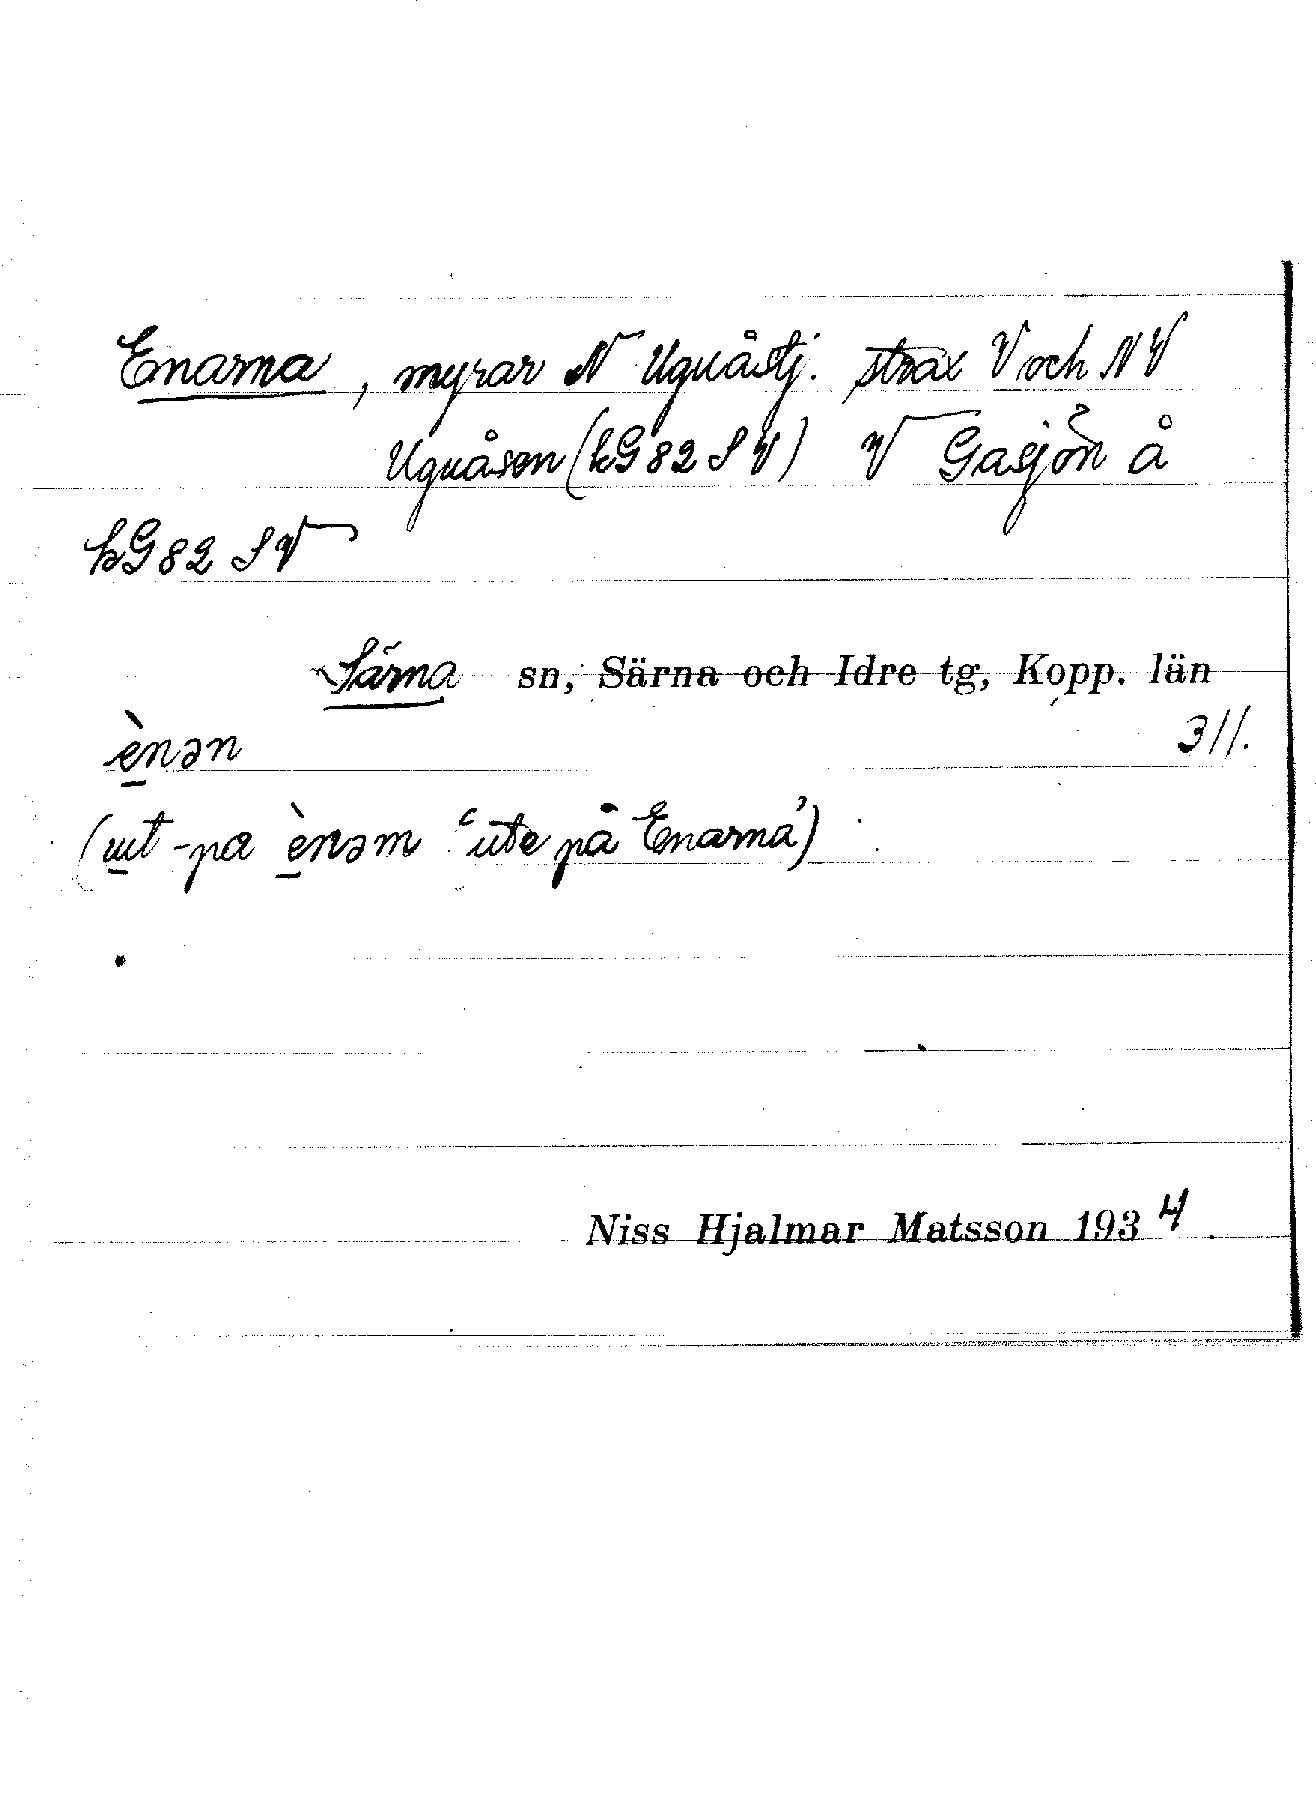 Enarna, myrar N Uguåstj. strax V och NV
Uguåsen (kG82SV) V Gasjön å
kG82 SV
Särna sn, Särna och Idre tg, Kopp. län
ènən 3/1.
(ut -pa ènəm ‘ute på Enarna’)
Niss Hjalmar Matsson 1934.